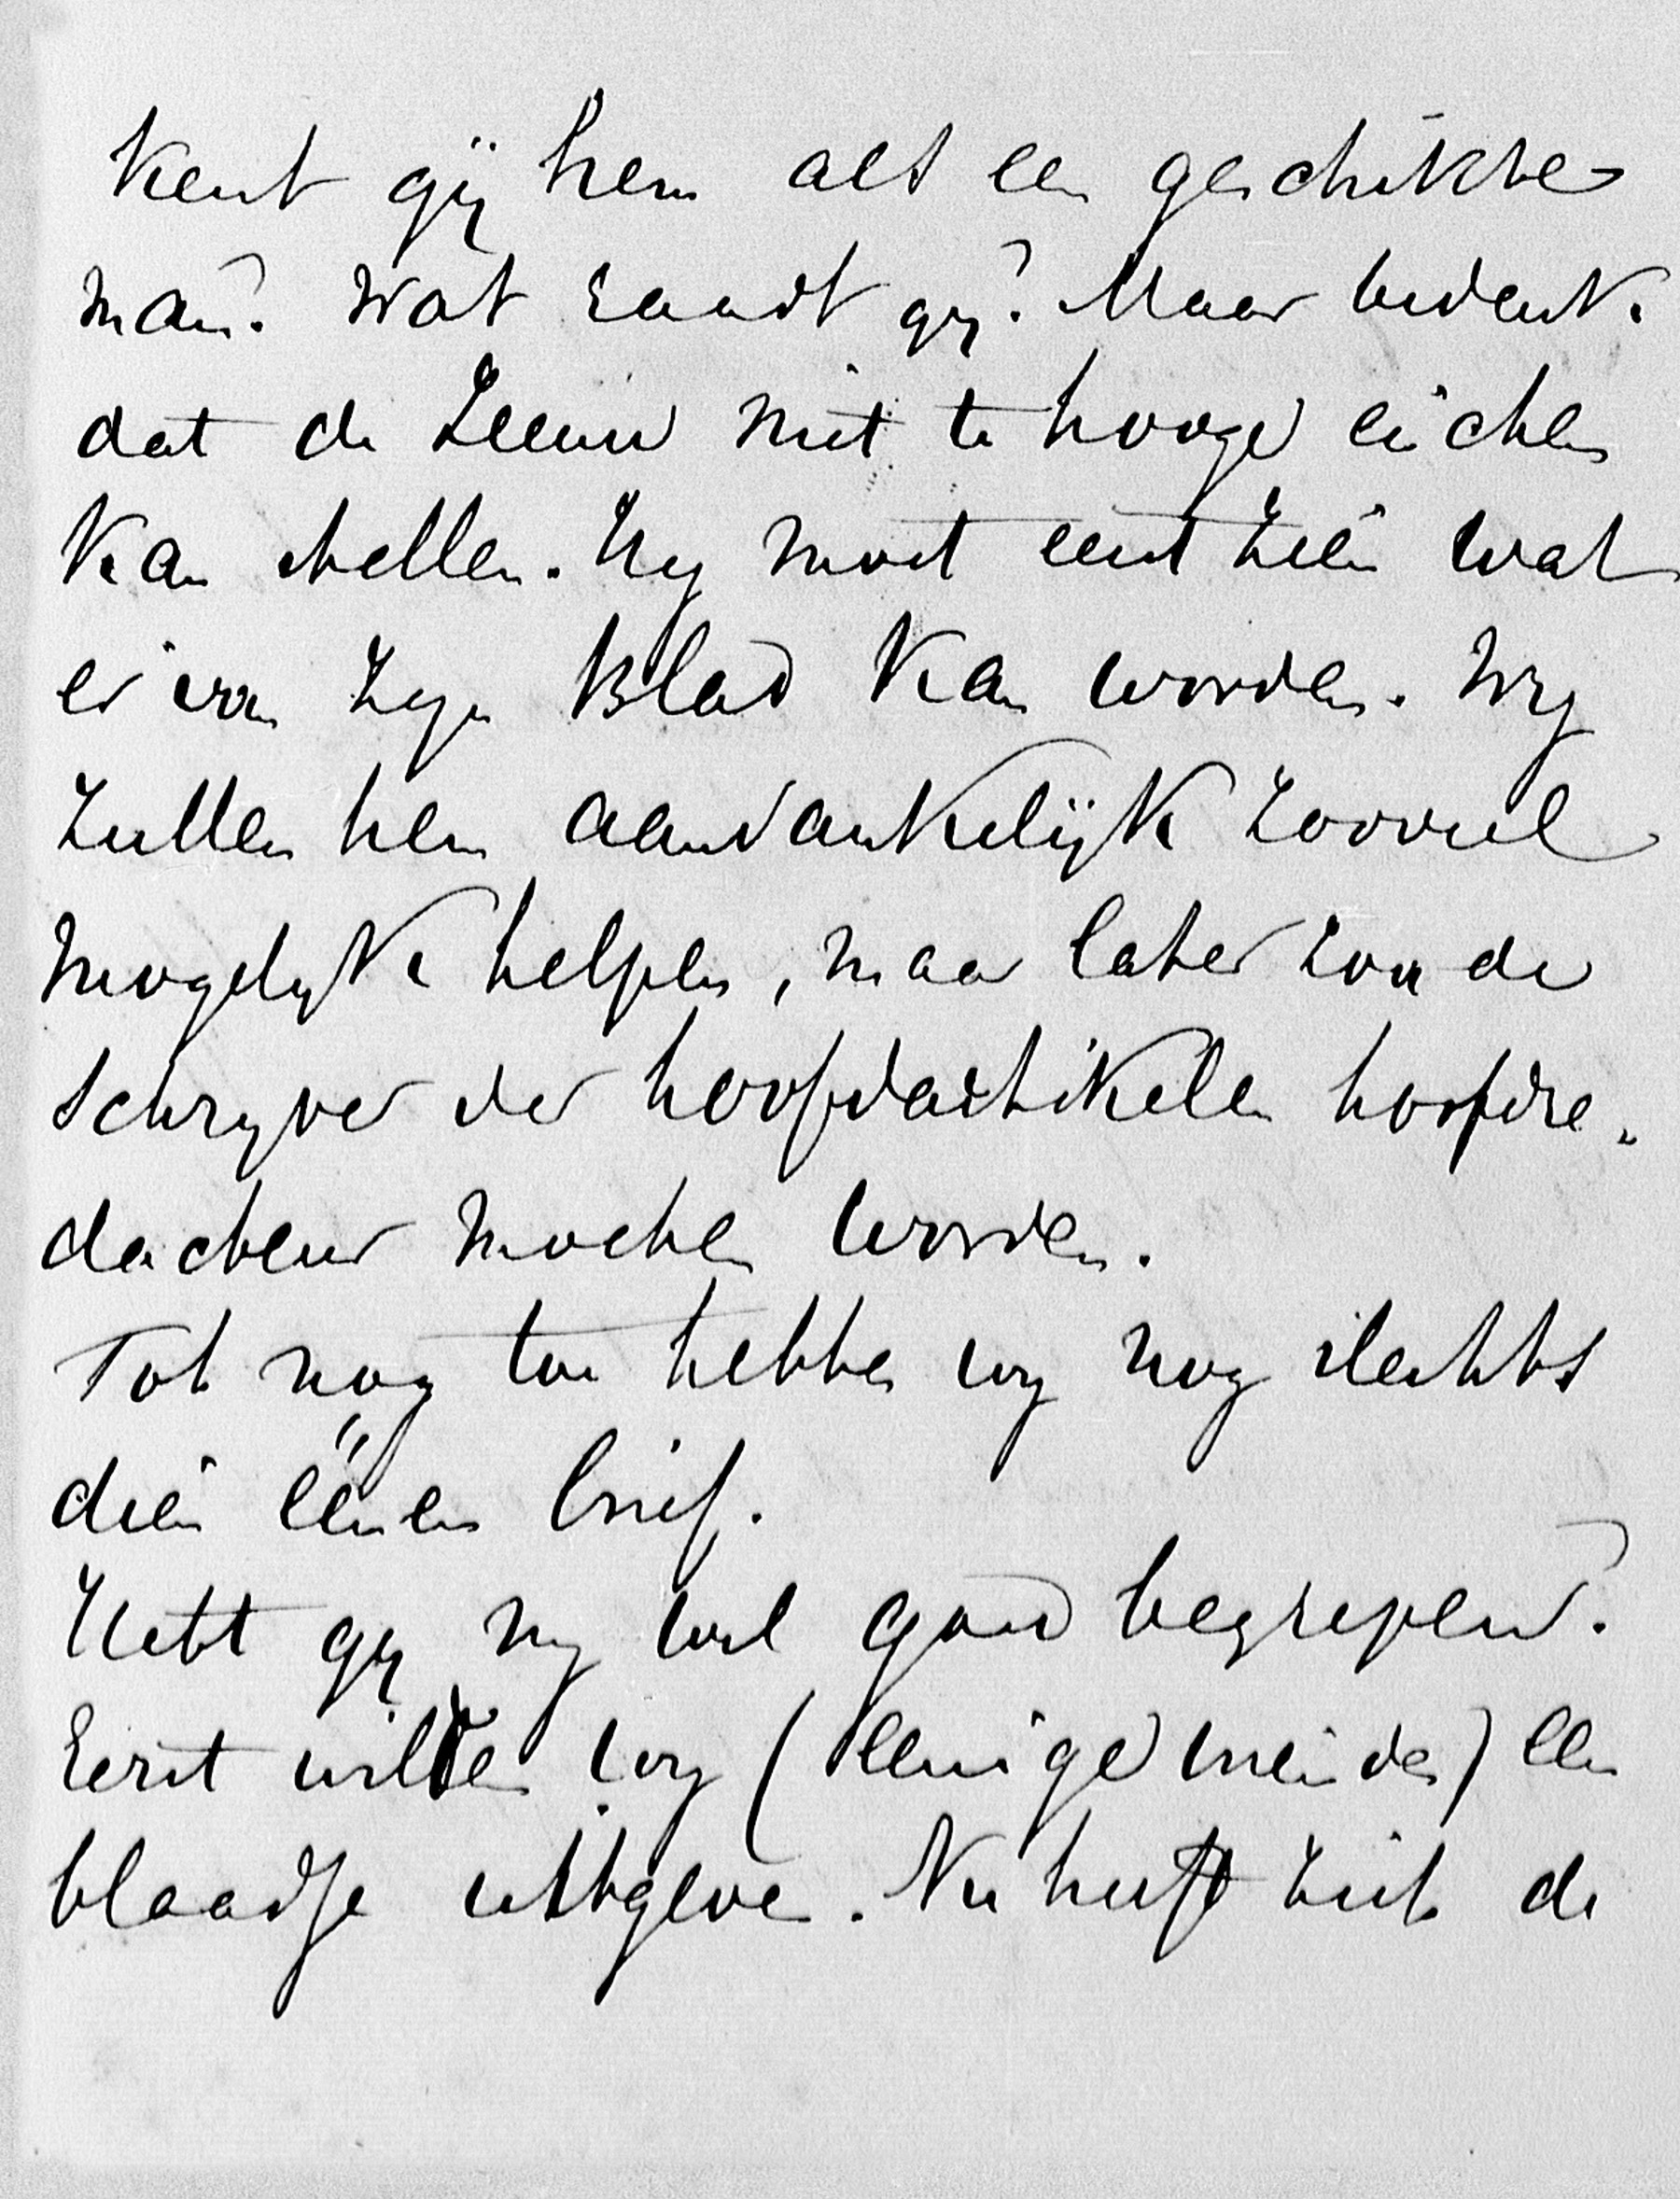 Kent gij hem als een geschikte
man? Wat raadt gy? Maar bedenk
dat de Leeuw niet te hooge eischen
kan stellen. Hy moet eerst zien wat
er van zyn Blad kan worden. Wy
zullen hem aanvankelijk zooveel
mogelyk helpen, maar later zou de
schryver der hoofdartikelen hoofdre„
dacteur moeten worden.
Tot nog toe hebben wy nog slechts
dien éénen brief.
Hebt gy my wel goed begrepen?
Eerst wilden wy (eenige vrienden) een
blaadje uitgeven. Nu heeft zich de